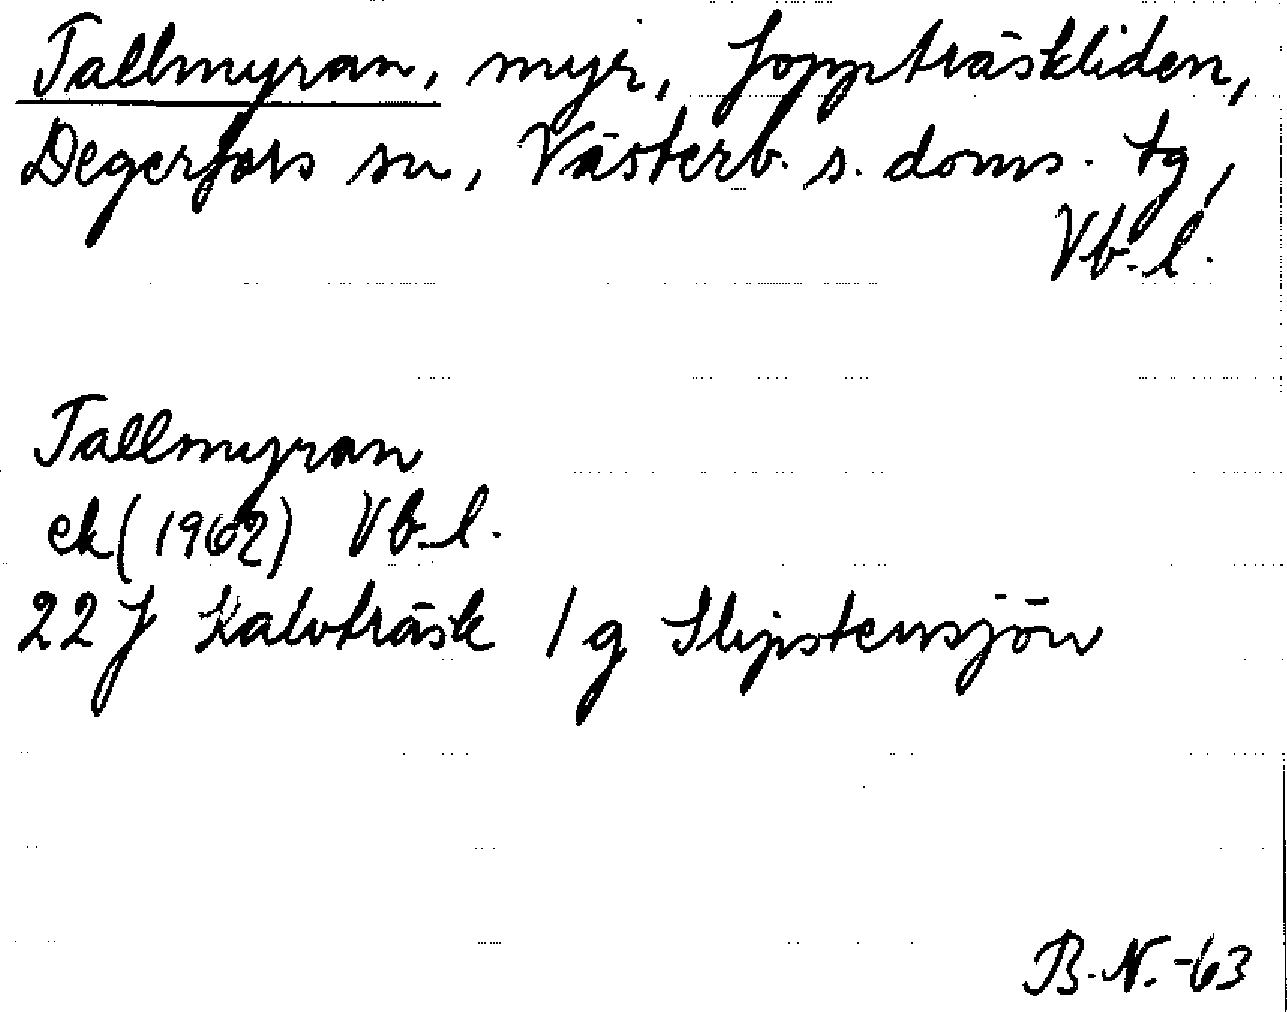 Tallmyran, myr, Joppträskliden,
Degerfors sn, Västerb. s. doms. tg,
Vb. l.
Tallmyran
ek (1962) Vb. l.
22 J Kalvträsk 1 g Slipstensjön
B. N. -63